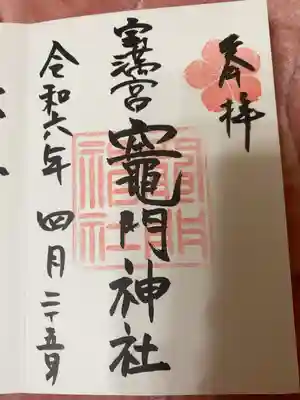 奉拝
宝満宮 竈門神社
令和六年 四月 二十五日